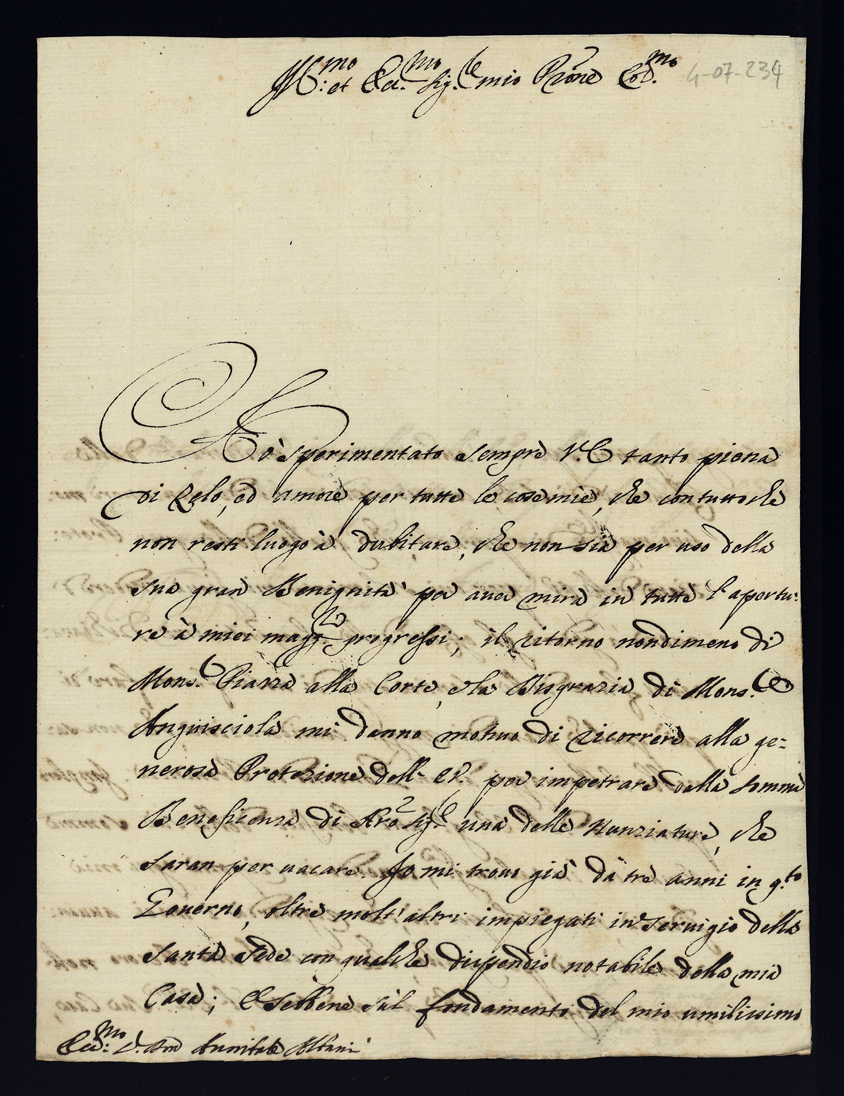 Ill:mo et Ecc:mo Sig.re mio Prone Col.mo 4-07-234
Hò sperimentato sempre V.E. tanto piena
di Zelo, ed amore per tutte le cose mie, che contuttoche
non resti luogo à dubitare, che non sia per uso della
sua gran Benignità per aver mira in tutte l'apertu:
re à miei magg.ri progressi; il ritorno nondimeno di
Mons.r Piazza alla Corte, e la Disgrazia di Mons.re
Anguisciola mi danno motivo di ricorrere alla ge=
nerosa Protezione dell' E.V. per impetrare dalla somma
Beneficenza di Nro Sig.re una delle Nunziature, che
saran per vacare. Io mi trovo già da tre anni in q.to
Governo, oltre molt'altri impiegati in servigio della
Santa Sede con qualche dispendio notabile della mia
Casa; e sebbene sul fondamento del mio umilissimo
Ecc:mo D. Annibale Albani